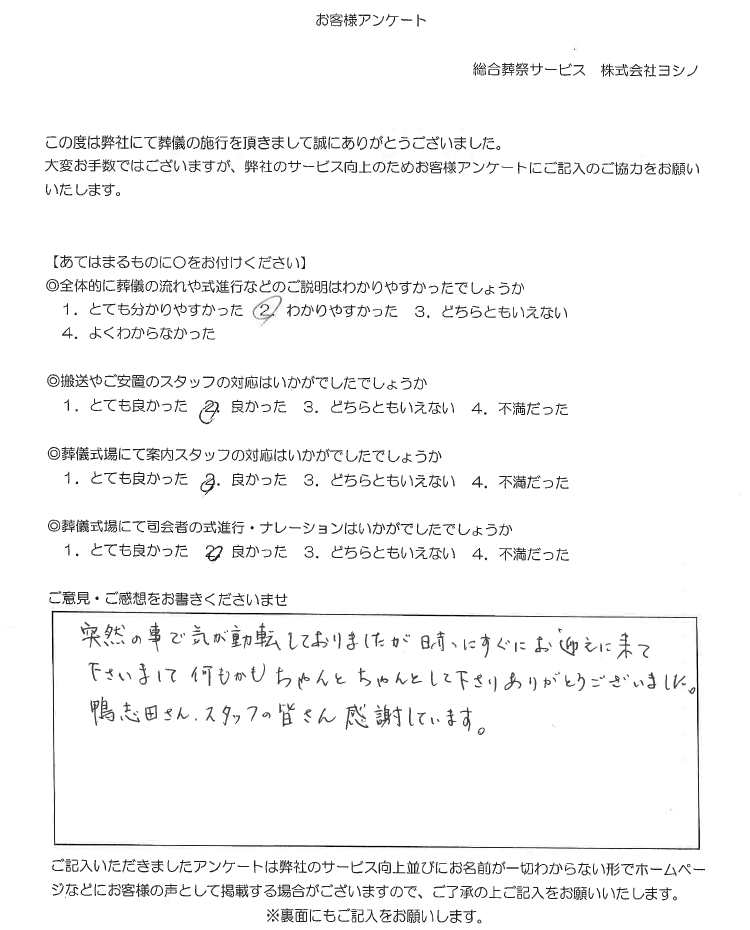 お客様アンケート
総合葬祭サービス　株式会社ヨシノ
この度は弊社にて葬儀の施行を頂きまして誠にありがとうございました。
大変お手数ではございますが、弊社のサービス向上のためお客様アンケートにご記入のご協力をお願い
いたします。
【あてはまるものに〇をお付けください】
◎全体的に葬儀の流れや式進行などのご説明はわかりやすかったでしょうか
1．とても分かりやすかった　2．わかりやすかった　3．どちらともいえない
4．よくわからなかった
◎搬送やご安置のスタッフの対応はいかがでしたでしょうか
1．とても良かった　2．良かった　3．どちらともいえない　4．不満だった
◎葬儀式場にて案内スタッフの対応はいかがでしたでしょうか
1．とても良かった　2．良かった　3．どちらともいえない　4．不満だった
◎葬儀式場にて司会者の式進行・ナレーションはいかがでしたでしょうか
1．とても良かった　2．良かった　3．どちらともいえない　4．不満だった
ご意見・ご感想をお書きくださいませ
突然の事で気が動転しておりましたが 時、にすぐにお迎えに来て
下さいまして 何もかも ちゃんと ちゃんとして下さりありがとうございました。
鴨志田さん、スタッフの皆さん 感謝しています。
ご記入いただきましたアンケートは弊社のサービス向上並びにお名前が一切わからない形でホームペー
ジなどにお客様の声として掲載する場合がございますので、ご了承の上ご記入をお願いいたします。
※裏面にもご記入をお願いします。